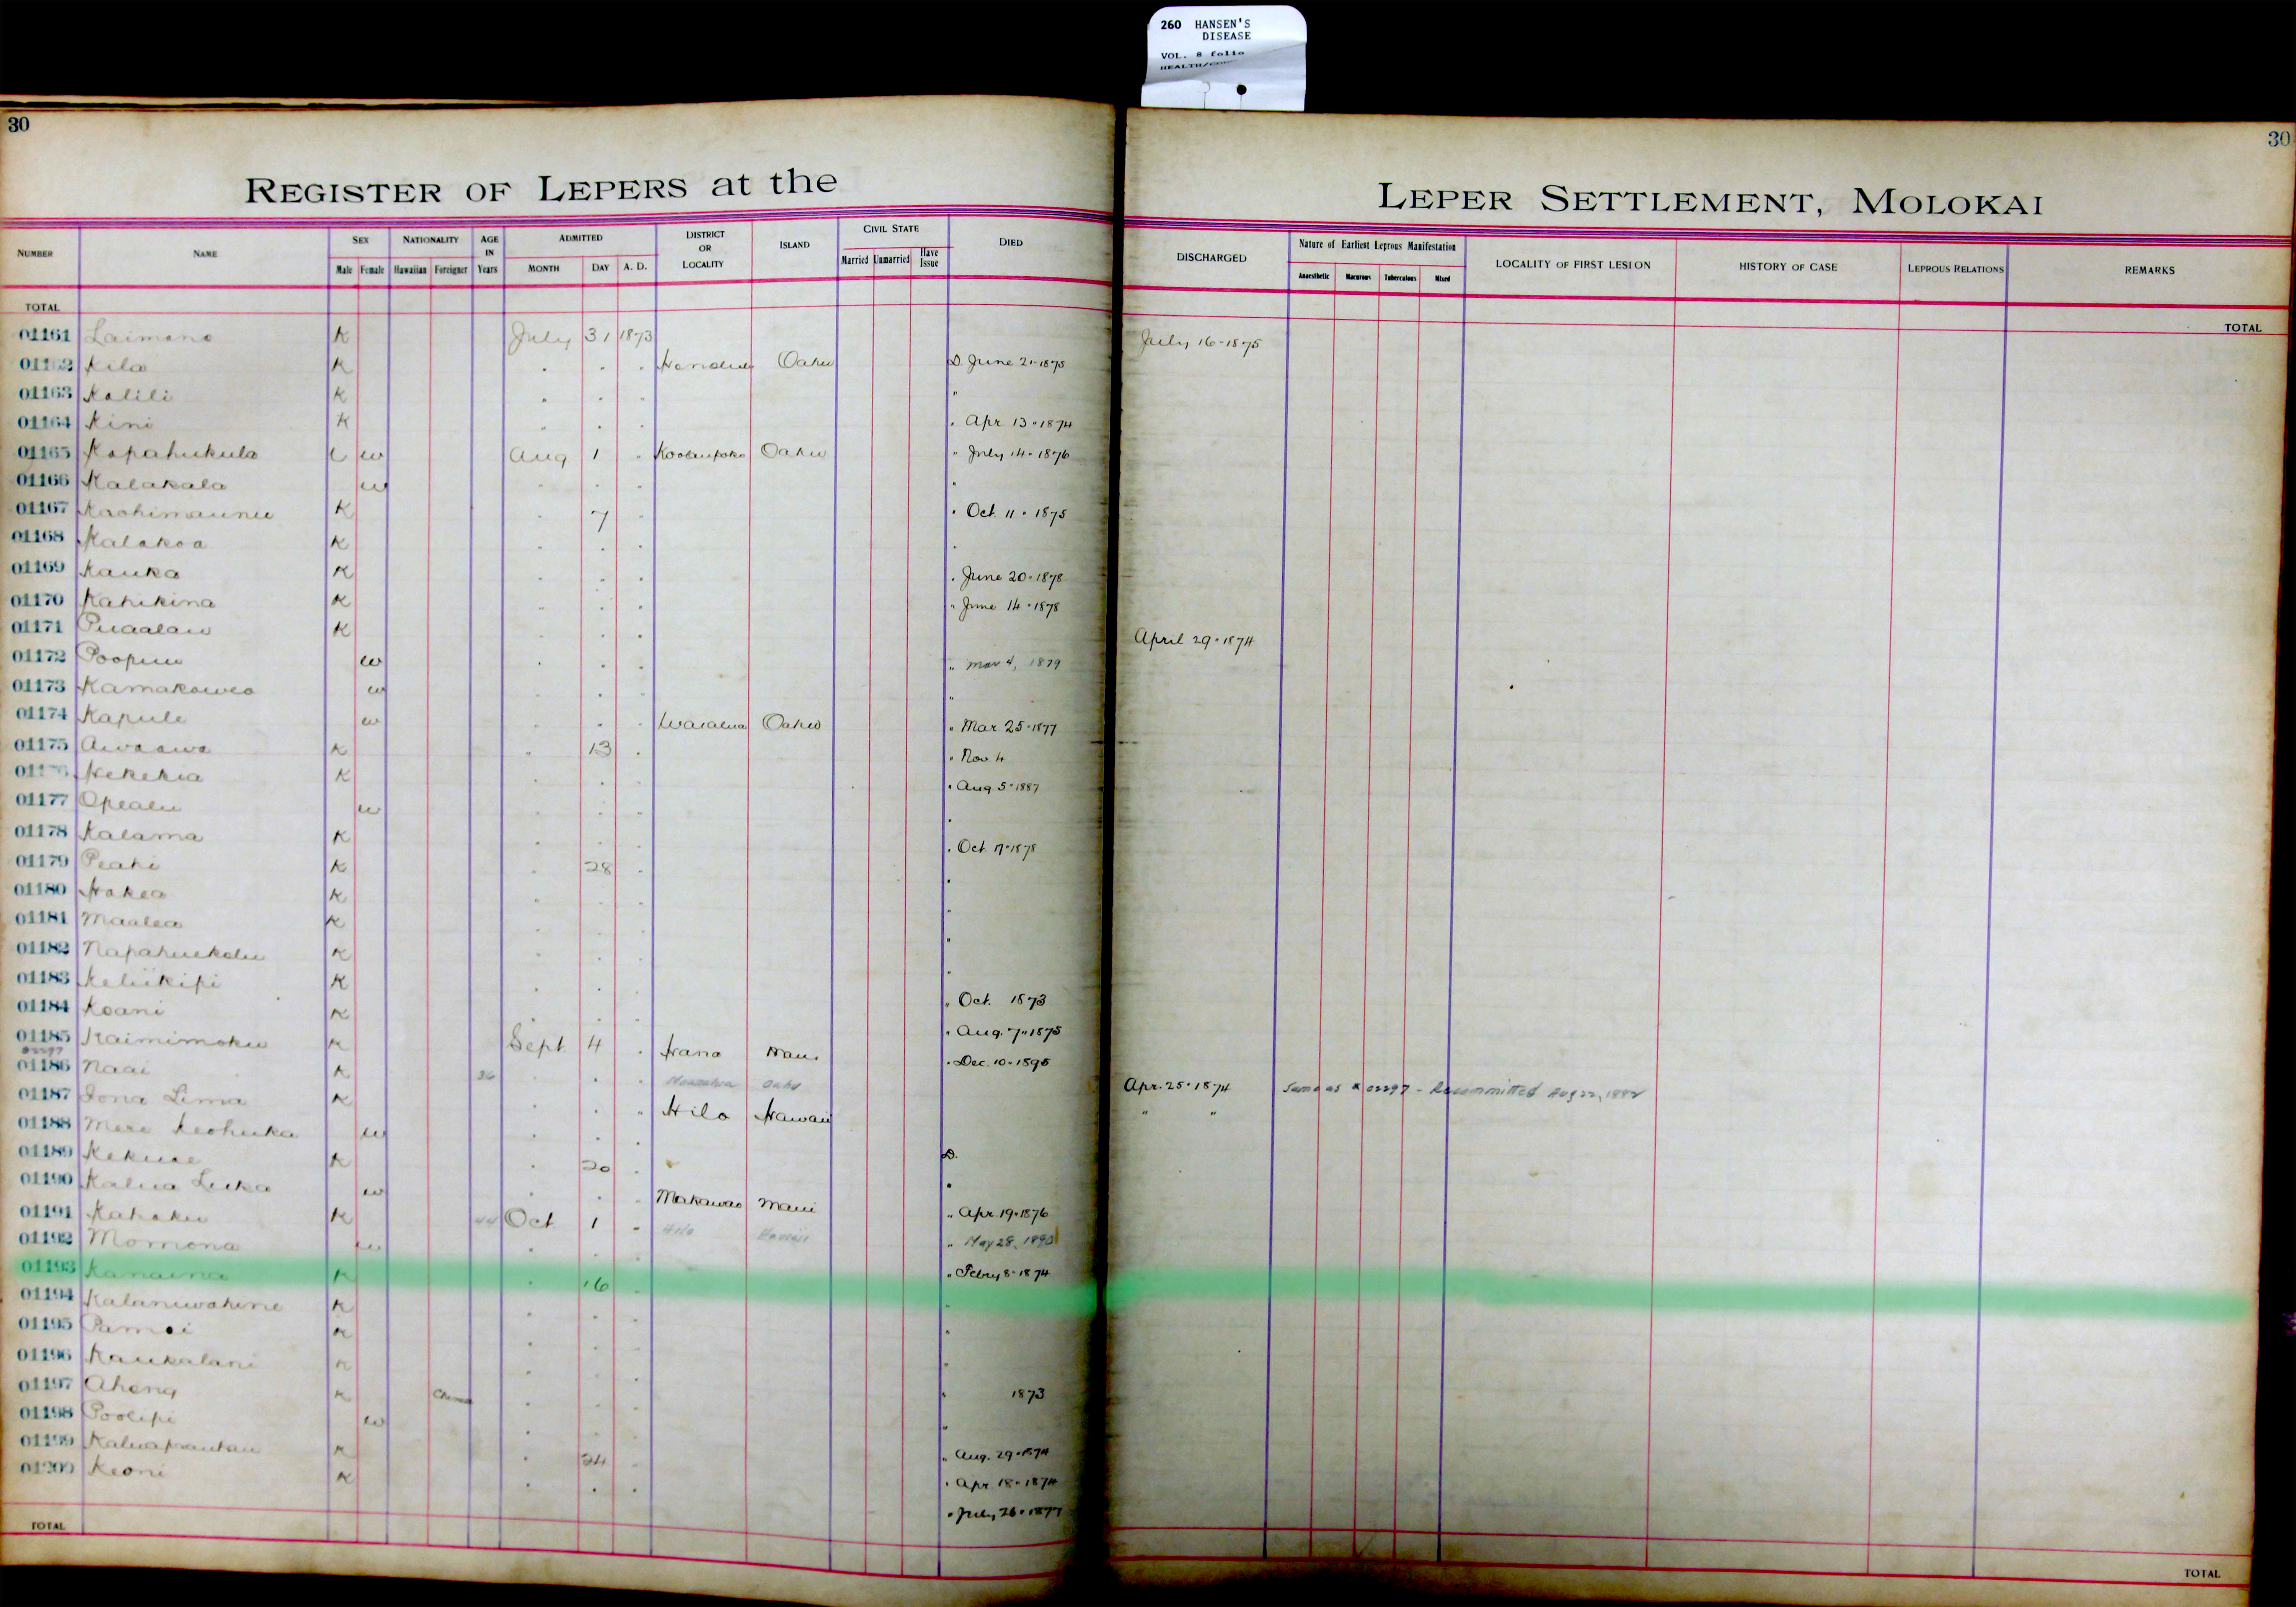 260 HANSEN'S
DISEASE
VOL. 8 folio
30
30
REGISTER OF LEPERS at the
LEPER SETTLEMENT, MOLOKAI
NUMBER NAME SEX NATIONALITY AGE IN Years ADMITTED DISTRICT OR LOCALITY ISLAND CIVIL STATE DIED
Male Female Hawaiian Foreigner MONTH DAY A. D. Married Unmarried Have Issue
DISCHARGED Nature of Earliest Leprous Manifestation LOCALITY OF FIRST LESION HISTORY OF CASE LEPROUS RELATIONS REMARKS
Anaesthetic Macurous Tuberculous Mixed
TOTAL TOTAL
01161 Laimana K July 31 1873 July 16-1875
Kila K " " " Honolulu Oahu D. June 21-1875
01163 Kalili K " " " "
01164 Kini K " " " " Apr 13-1874
01165 Kapahukula w Aug 1 " Koolaupoko Oahu " July 14-1876
01166 Kalakala w " " " "
01167 K " 7 " " Oct 11-1875
01168 Kalakoa K " " " "
01169 Kauka K " " " " June 20-1878
01170 Kahikina K " " " " June 14-1878
01171 Puaalau K " " " April 29-1874
01172 w " " " " Mar 4, 1879
01173 w " " " "
01174 Kapule w " " " Waialua Oahu " Mar 25-1877
01175 Awaawa K " 13 " " Nov. 4
Kekekia K " " " " Aug 5-1887
01177 Opealu w " " " "
01178 Kalama K " " " " Oct 17-1878
01179 Peahi K " 28 " "
01180 Hakea K " " " "
01181 Maalea K " " " "
01182 Napahuekolu K " " " "
01183 Keliikipi K " " " " Oct. 1873
01184 Koani K " " " " Aug. 7-1875
01185 Kaimimoku K Sept 4 " Hana Maui " Dec. 10-1895
01186 Naai K 36 " " " Oahu Apr. 25-1874 Same as # 02297 - Recommitted Aug 22, 1882
01187 Iona Lima K " " " Hilo Hawaii " "
01188 Mere Keohuka w " " " D.
01189 Kekuae K " 20 " "
01190 Kalua Luka w " " " Makawao Maui " Apr 19-1876
01191 Kahaku K 44 Oct 1 " Hilo Hawaii " May 28, 1890
01192 Momona w " " " " Febry 8-1874
01193 Kanaina K " 16 " "
01194 Kalaniwahine K " " " "
01195 K " " " "
01196 Kaukalani K " " " " 1873
01197 Ahong K China " " " "
01198 Poolipi w " " " " Aug. 29-1874
01199 K " 24 " " Apr 18-1874
01200 Keoni K " " " " July 26-1877
TOTAL TOTAL